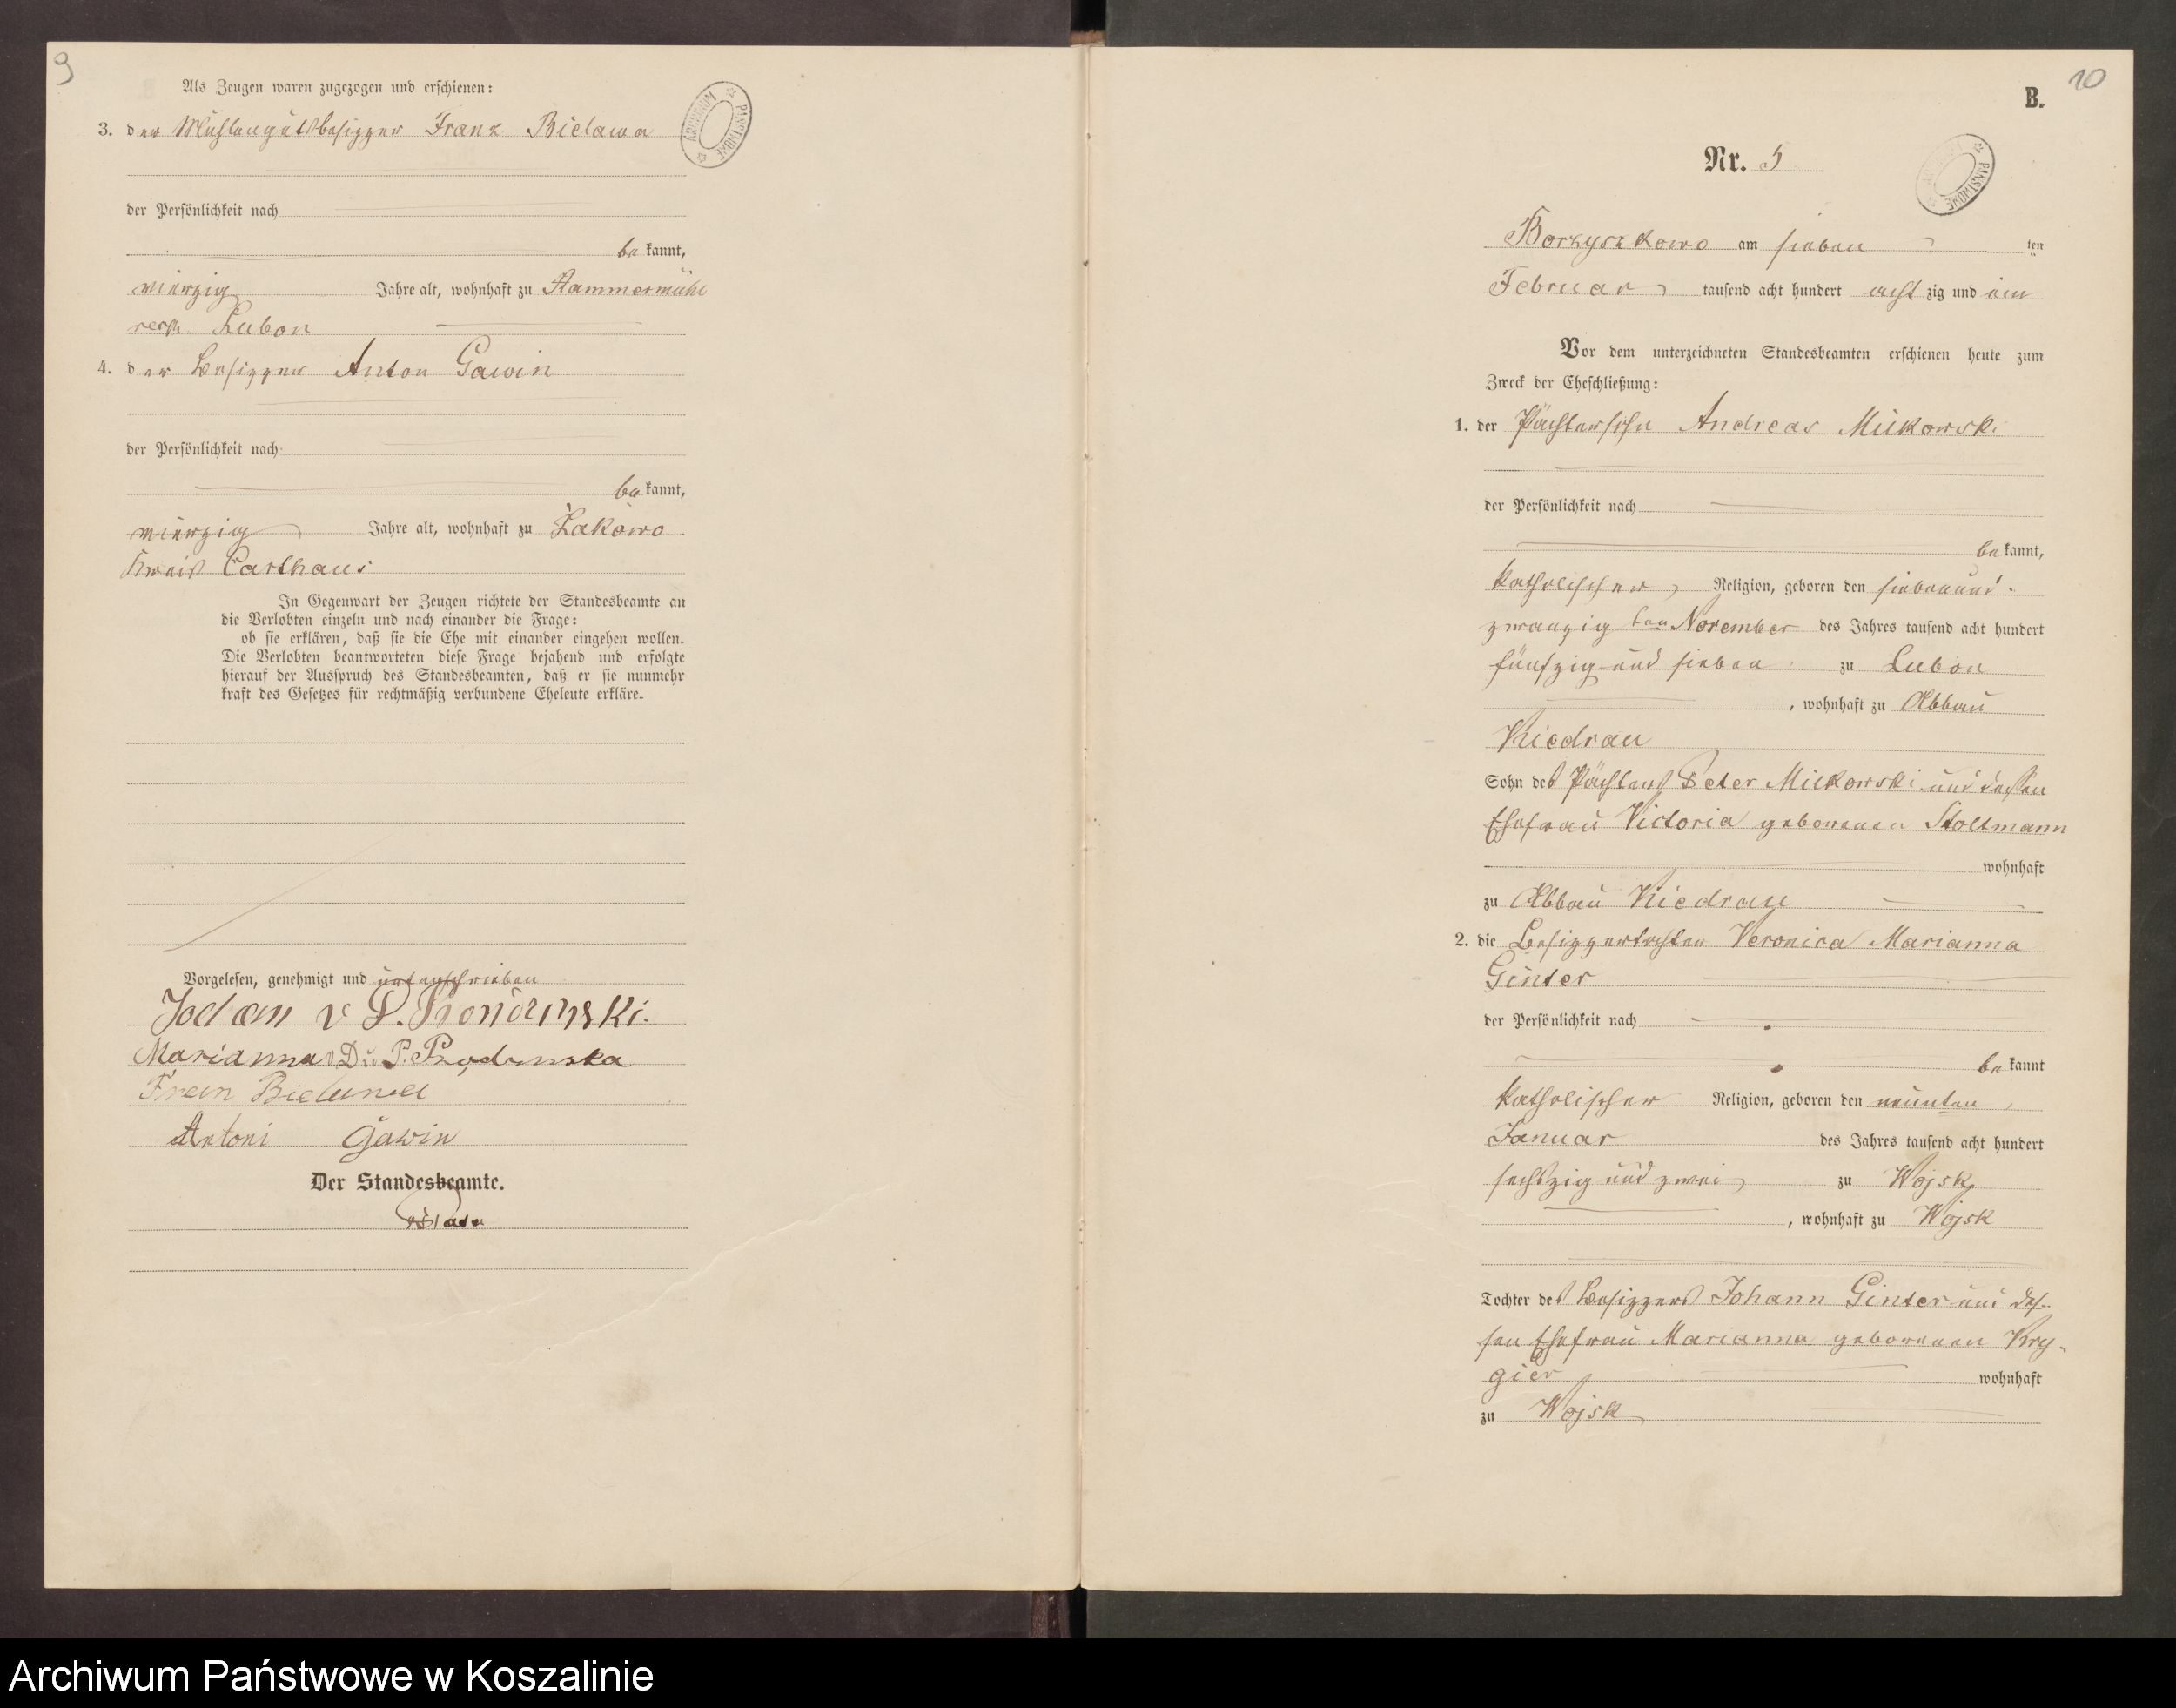 9
Als Zeugen waren zugezogen und erschienen:
3. der Mühlengutsbesitzer Franz Bielawa
der Persönlichkeit nach
be kannt,
vierzig Jahre alt, wohnhaft zu Hammermühl
resp. Lubon
4. der Besitzer Anton Gawin
der Persönlichkeit nach
be kannt,
vierzig Jahre alt, wohnhaft zu Łakowo
Kreis Carthaus
In Gegenwart der Zeugen richtete der Standesbeamte an
die Verlobten einzeln und nach einander die Frage:
ob sie erklären, daß sie die Ehe mit einander eingehen wollen.
Die Verlobten beantworteten diese Frage bejahend und erfolgte
hierauf der Ausspruch des Standesbeamten, daß er sie nunmehr
kraft des Gesetzes für rechtmäßig verbundene Eheleute erkläre.
Vorgelesen, genehmigt und unterschrieben
Marianna
Antoni Gawin
Der Standesbeamte.
ARCHIWUM PAŃSTWOWE
10
B.
Nr. 5
PAŃSTWOWE
Borzyszkowo am sieben ten
Februar tausend acht hundert acht zig und ein
Vor dem unterzeichneten Standesbeamten erschienen heute zum
Zweck der Eheschließung:
1. der Pächtersohn Andreas Milkowski
der Persönlichkeit nach
be kannt,
katholischer Religion, geboren den siebenund
zwanzigten November des Jahres tausend acht hundert
fünfzig und sieben zu Lubon
, wohnhaft zu Abbau
Kiedrau
Sohn des Pächters Peter Milkowski und dessen
Ehefrau Victoria geborenen Stoltmann
wohnhaft
zu Abbau Kiedrau
2. die Besitzertochter Veronica Marianna
Ginter
der Persönlichkeit nach
be kannt
katholischer Religion, geboren den neunten
Januar des Jahres tausend acht hundert
sechszig und zwei zu Wojsk
, wohnhaft zu Wojsk
Tochter des Besitzers Johann Ginter und des-
sen Ehefrau Marianna geborenen Kry-
gier wohnhaft
zu Wojsk
Archiwum Państwowe w Koszalinie